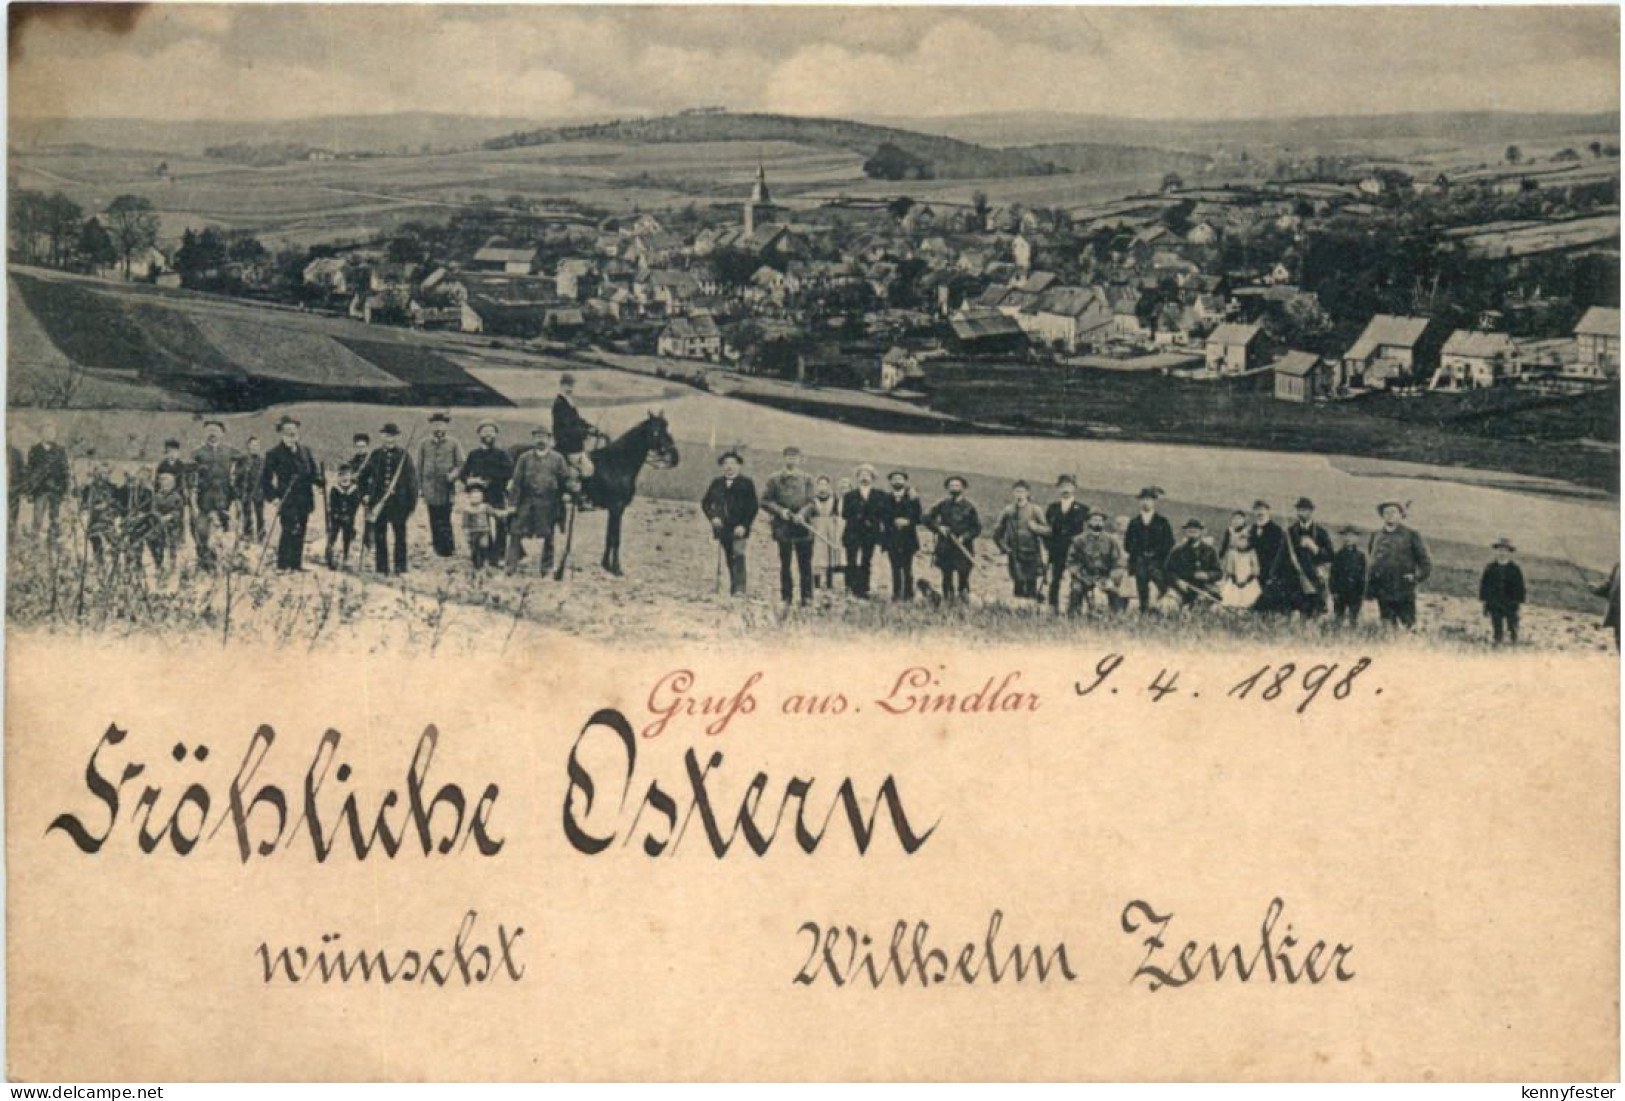 Gruß aus. Lindlar 9. 4. 1898.
Fröhliche Ostern
wünscht Wilhelm Zenker
delcampe.net kennyfester